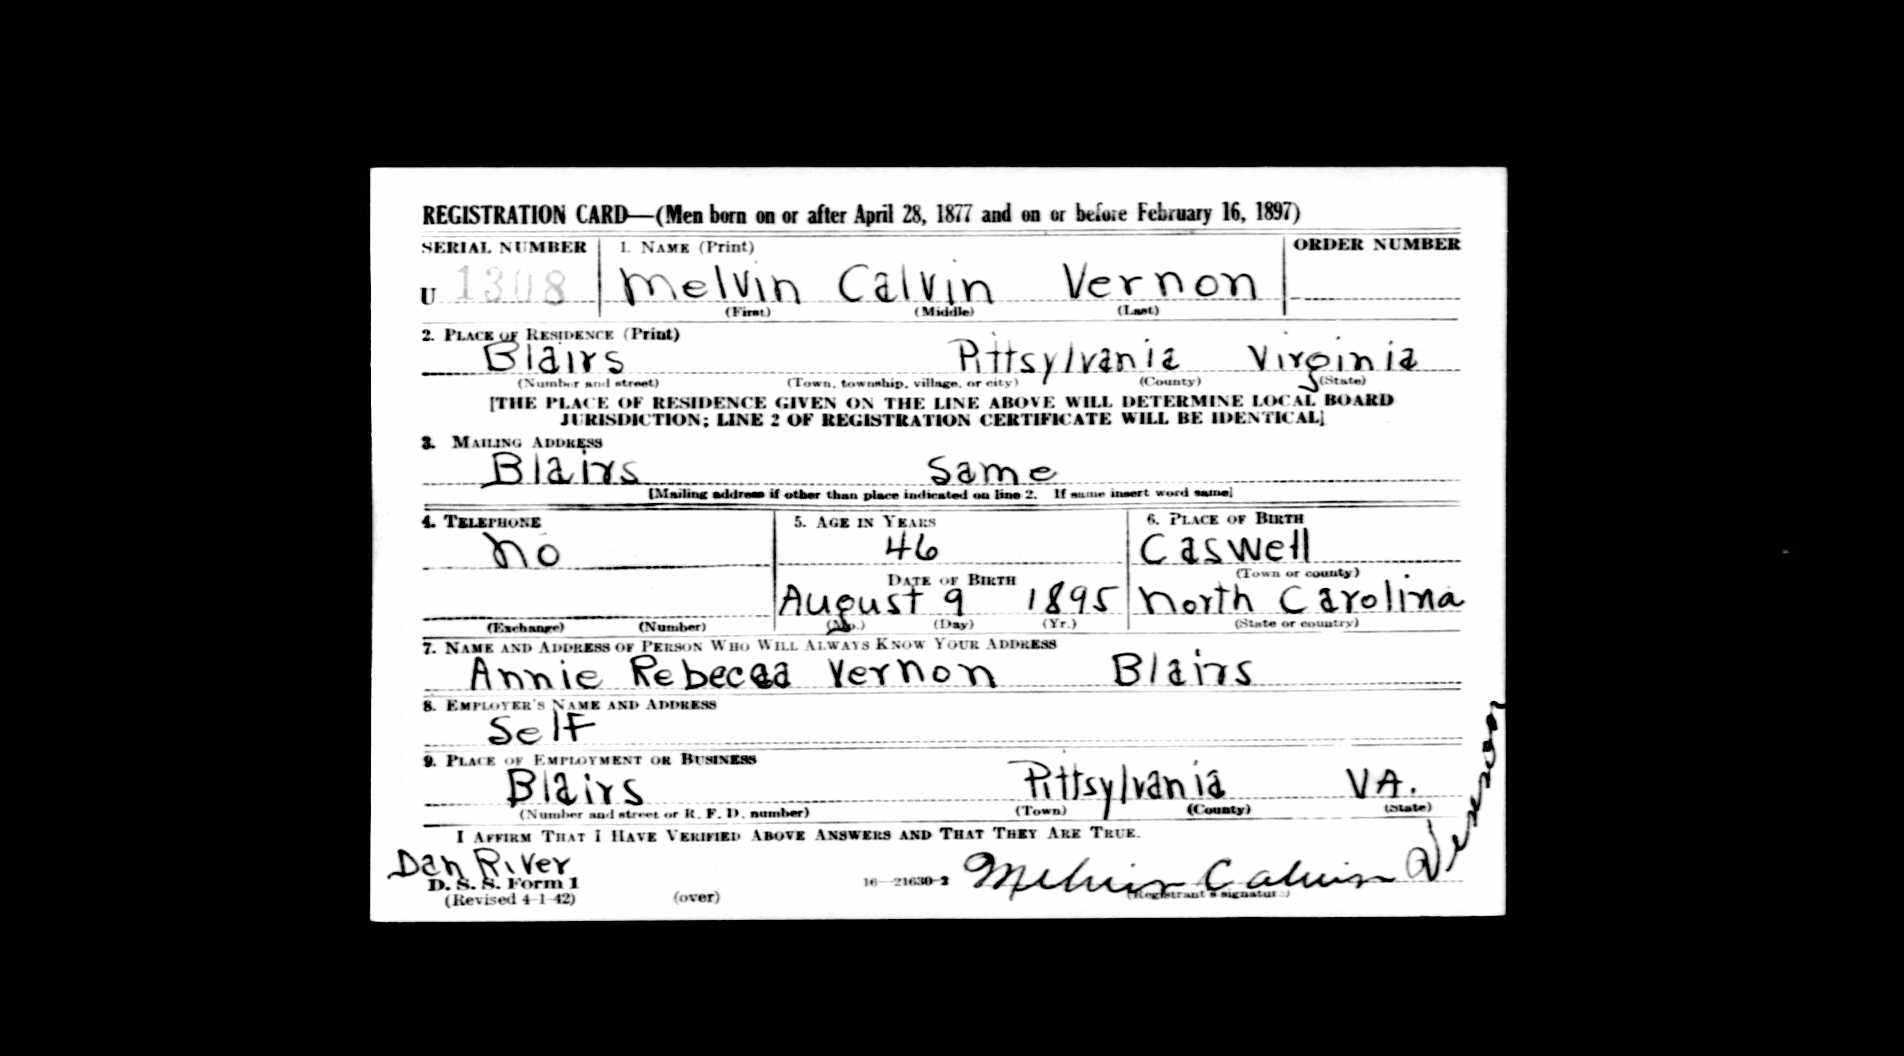 REGISTRATION CARD—(Men born on or after April 28, 1877 and on or before February 16, 1897)
SERIAL NUMBER 1. NAME (Print) ORDER NUMBER
U 1308 Melvin Calvin Vernon
(First) (Middle) (Last)
2. PLACE OF RESIDENCE (Print)
Blairs Pittsylvania Virginia
(Number and street) (Town, township, village, or city) (County) (State)
[THE PLACE OF RESIDENCE GIVEN ON THE LINE ABOVE WILL DETERMINE LOCAL BOARD
JURISDICTION; LINE 2 OF REGISTRATION CERTIFICATE WILL BE IDENTICAL]
3. MAILING ADDRESS
Blairs Same
[Mailing address if other than place indicated on line 2. If same insert word same]
4. TELEPHONE 5. AGE IN YEARS 6. PLACE OF BIRTH
No 46 Caswell
DATE OF BIRTH (Town or county)
August 9 1895 North Carolina
(Exchange) (Number) (Mo.) (Day) (Yr.) (State or country)
7. NAME AND ADDRESS OF PERSON WHO WILL ALWAYS KNOW YOUR ADDRESS
Annie Rebecca Vernon Blairs
8. EMPLOYER'S NAME AND ADDRESS
Self
9. PLACE OF EMPLOYMENT OR BUSINESS
Blairs Pittsylvania VA.
(Number and street or R. F. D. number) (Town) (County) (State)
I AFFIRM THAT I HAVE VERIFIED ABOVE ANSWERS AND THAT THEY ARE TRUE.
Dan River
D. S. S. Form 1 16—21630-2 Melvin Calvin Vernon
(Revised 4-1-42) (over) (Registrant's signature)